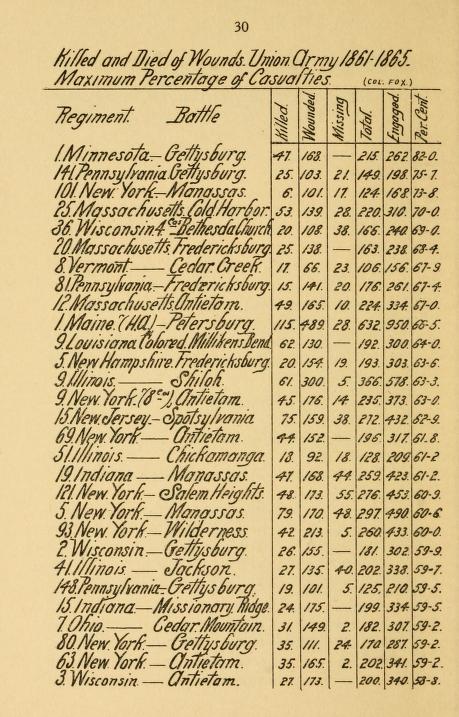 30
Killed and Died of Wounds. Union Army 1861-1865.
Maximum Percentage of Casualties. (COL. FOX.)
Regiment. Battle Killed. Wounded. Missing. Total. Engaged. Per. Cent
1. Minnesota. — Gettysburg. 47. 168. — 215. 262 82-0.
141. Pennsylvania. Gettysburg. 25. 103. 21. 149. 198. 75-7.
101. New. York. — Manassas. 6. 101. 17. 124. 168. 73-8
25. Massachusetts. Cold Harbor. 53. 139. 28. 220. 310. 70-0
36. Wisconsin 4 Cos Bethesda Church 20. 108. 38. 166. 240. 69-0.
20. Massachusetts. Fredericksburg. 25. 138. — 163. 238. 68-4.
8. Vermont. — Cedar Creek. 17. 66. 23. 106. 156. 67-9
81. Pennsylvania. — Fredericksburg. 15. 141. 20 176. 261. 67-4.
12. Massachusetts. Antietam. 49. 165. 10. 224. 334. 67-0.
1. Maine. (H.A.) — Petersburg. 115. 489. 28. 632. 950. 66-5.
9. Louisiana Colored. Millikens Bend. 62 130. — 192. 300 64-0.
5. New Hampshire. Fredericksburg. 20 154. 19. 193. 303. 63-6
9. Illinois. — Shiloh. 61. 300. 5. 366. 578. 63-3.
9. New. York. (8 Cos), Antietam. 45 176. 14 235. 373. 63-0.
15. New. Jersey. — Spotsylvania 75. 159. 38. 272. 432 62-9.
69. New. York. — Antietam. 44 152. — 196. 317. 61.8.
51. Illinois. — Chickamanga. 18. 92. 18. 128. 209. 61-2
19. Indiana — Manassas. 47. 168. 44. 259. 423. 61-2.
121. New. York. — Salem Heights. 48. 173. 55. 276. 453. 60-9.
5. New. York. — Manassas. 79. 170. 48. 297. 490. 60-6.
93. New. York. — Wilderness. 42 213. 5. 260. 433. 60-0.
2. Wisconsin. — Gettysburg. 26. 155. — 181. 302. 59-9.
41. Illinois — Jackson. 27. 135. 40. 202. 338. 59-7.
148. Pennsylvania. — Gettysburg. 19. 101. 5. 125. 210. 59-5.
15. Indiana. — Missionary. Ridge. 24. 175. — 199. 334. 59-5.
7. Ohio. — Cedar Mountain. 31. 149. 2. 182. 307. 59-2.
80. New. York. — Gettysburg. 35. 111. 24. 170 287. 59-2.
63. New. York. — Antietam. 35. 165. 2. 202. 341. 59-2.
3. Wisconsin. — Antietam. 27. 173. — 200. 340. 58-8.